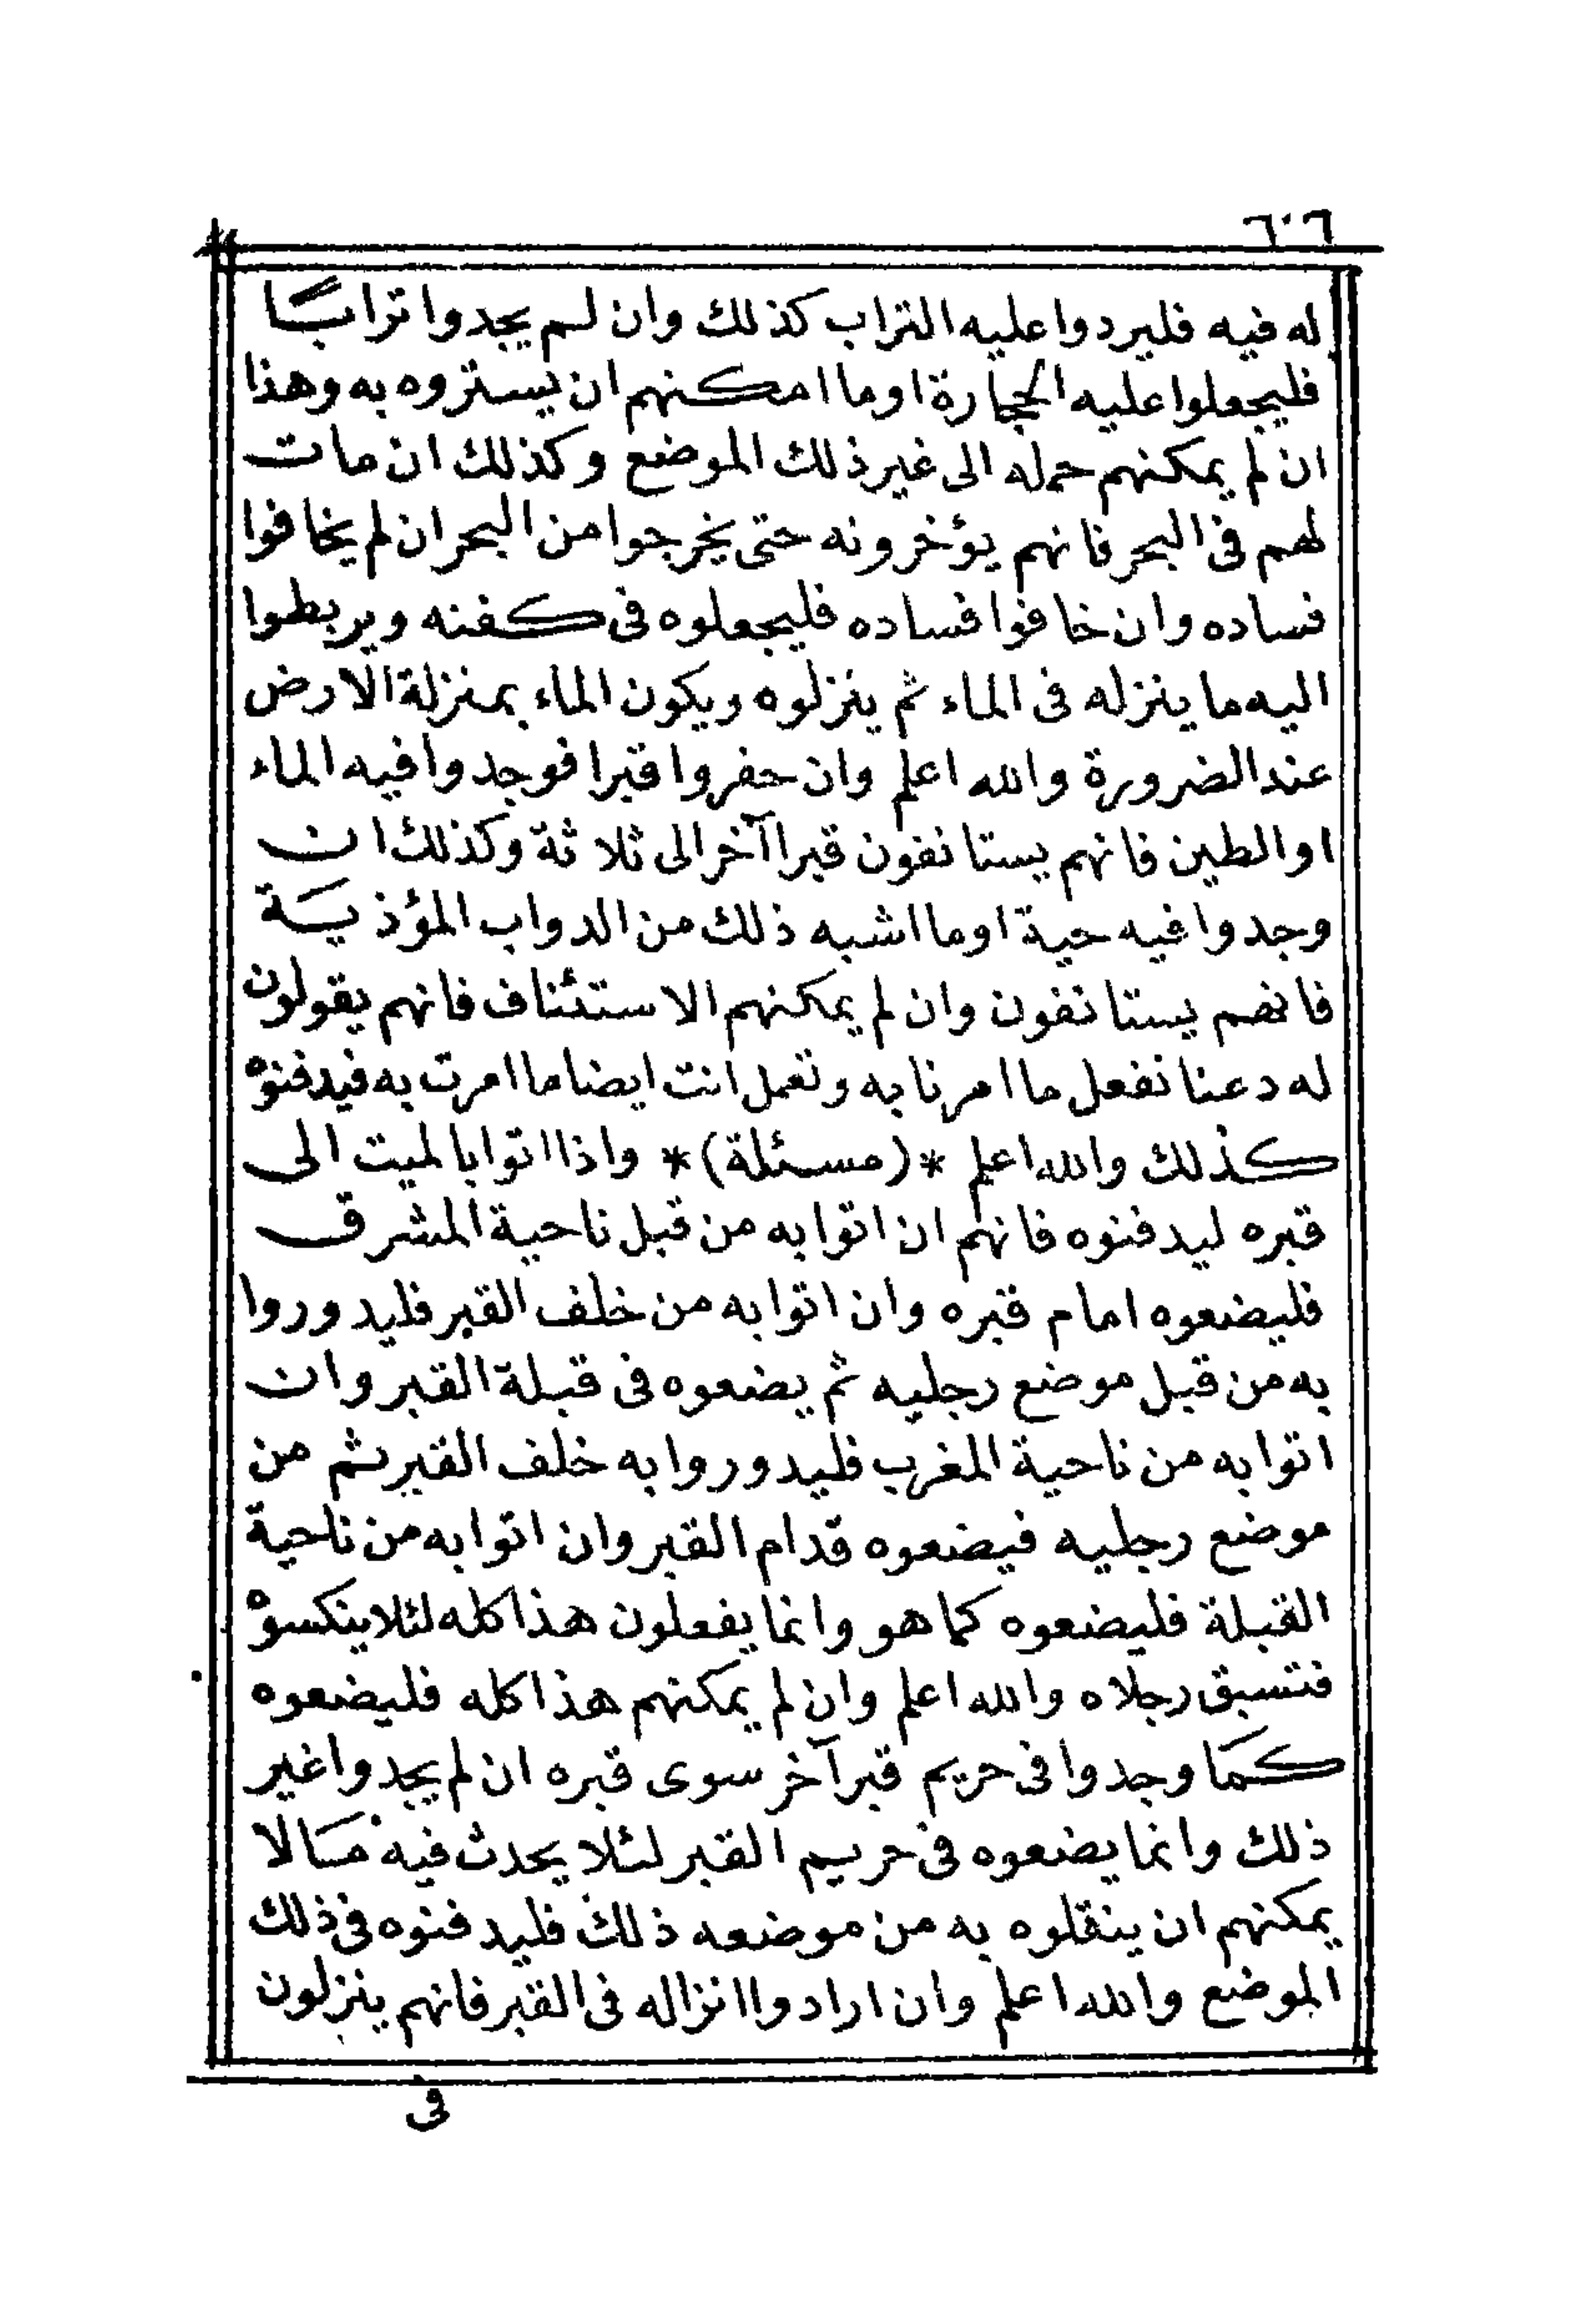 ٦٠٦
له فيه فليردوا عليه التراب كذلك وان لم يجدوا ترابًا
فليجعلوا عليه الحجارة او ما امكنهم ان يستروه به وهذا
ان لم يمكنهم حمله الى غير ذلك الموضع وكذلك ان مات
لهم فى البحر فانهم يؤخرونه حتى يخرجوا من البحر ان لم يخافوا
فساده وان خافوا فساده فليجعلوه فى كفنه ويربطوا
اليه ما ينزله فى الماء ثم ينزلوه ويكون الماء بمنزلة الارض
عند الضرورة والله اعلم وان حفروا قبرا فوجدوا فيه الماء
او الطين فانهم يستانفون قبرا آخر الى ثلاثة وكذلك ان
وجدوا فيه حية او ما اشبه ذلك من الدواب المؤذيَة
فانهم يستانفون وان لم يمكنهم الاستئناف فانهم يقولون
له دعنا نفعل ما امرنا به وتعمل انت ايضا ما امرت به فيدفنوه
كذلك والله اعلم *(مسئلة)* واذا اتوا بالميت الى
قبره ليدفنوه فانهم ان اتوا به من قبل ناحية المشرق
فليضعوه امام قبره وان اتوا به من خلف القبر فليدوروا
به من قبل موضع رجليه ثم يضعوه فى قبلة القبر وان
اتوا به من ناحية المغرب فليدوروا به خلف القبر ثم من
موضع رجليه فيضعوه قدام القبر وان اتوا به من ناحية
القبلة فليضعوه كما هو وانما يفعلون هذا كله لئلا ينكسوه
فتسبق رجلاه والله اعلم وان لم يمكنهم هذا كله فليضعوه
كمَا وجدوا فى حريم قبر آخر سوى قبره ان لم يجدوا غير
ذلك وانما يضعوه فى حريم القبر لئلا يحدث فيه مَالا
يمكنهم ان ينقلوه به من موضعه ذلك فليدفنوه فى ذلك
الموضع والله اعلم وان ارادوا انزاله فى القبر فانهم ينزلون
فى